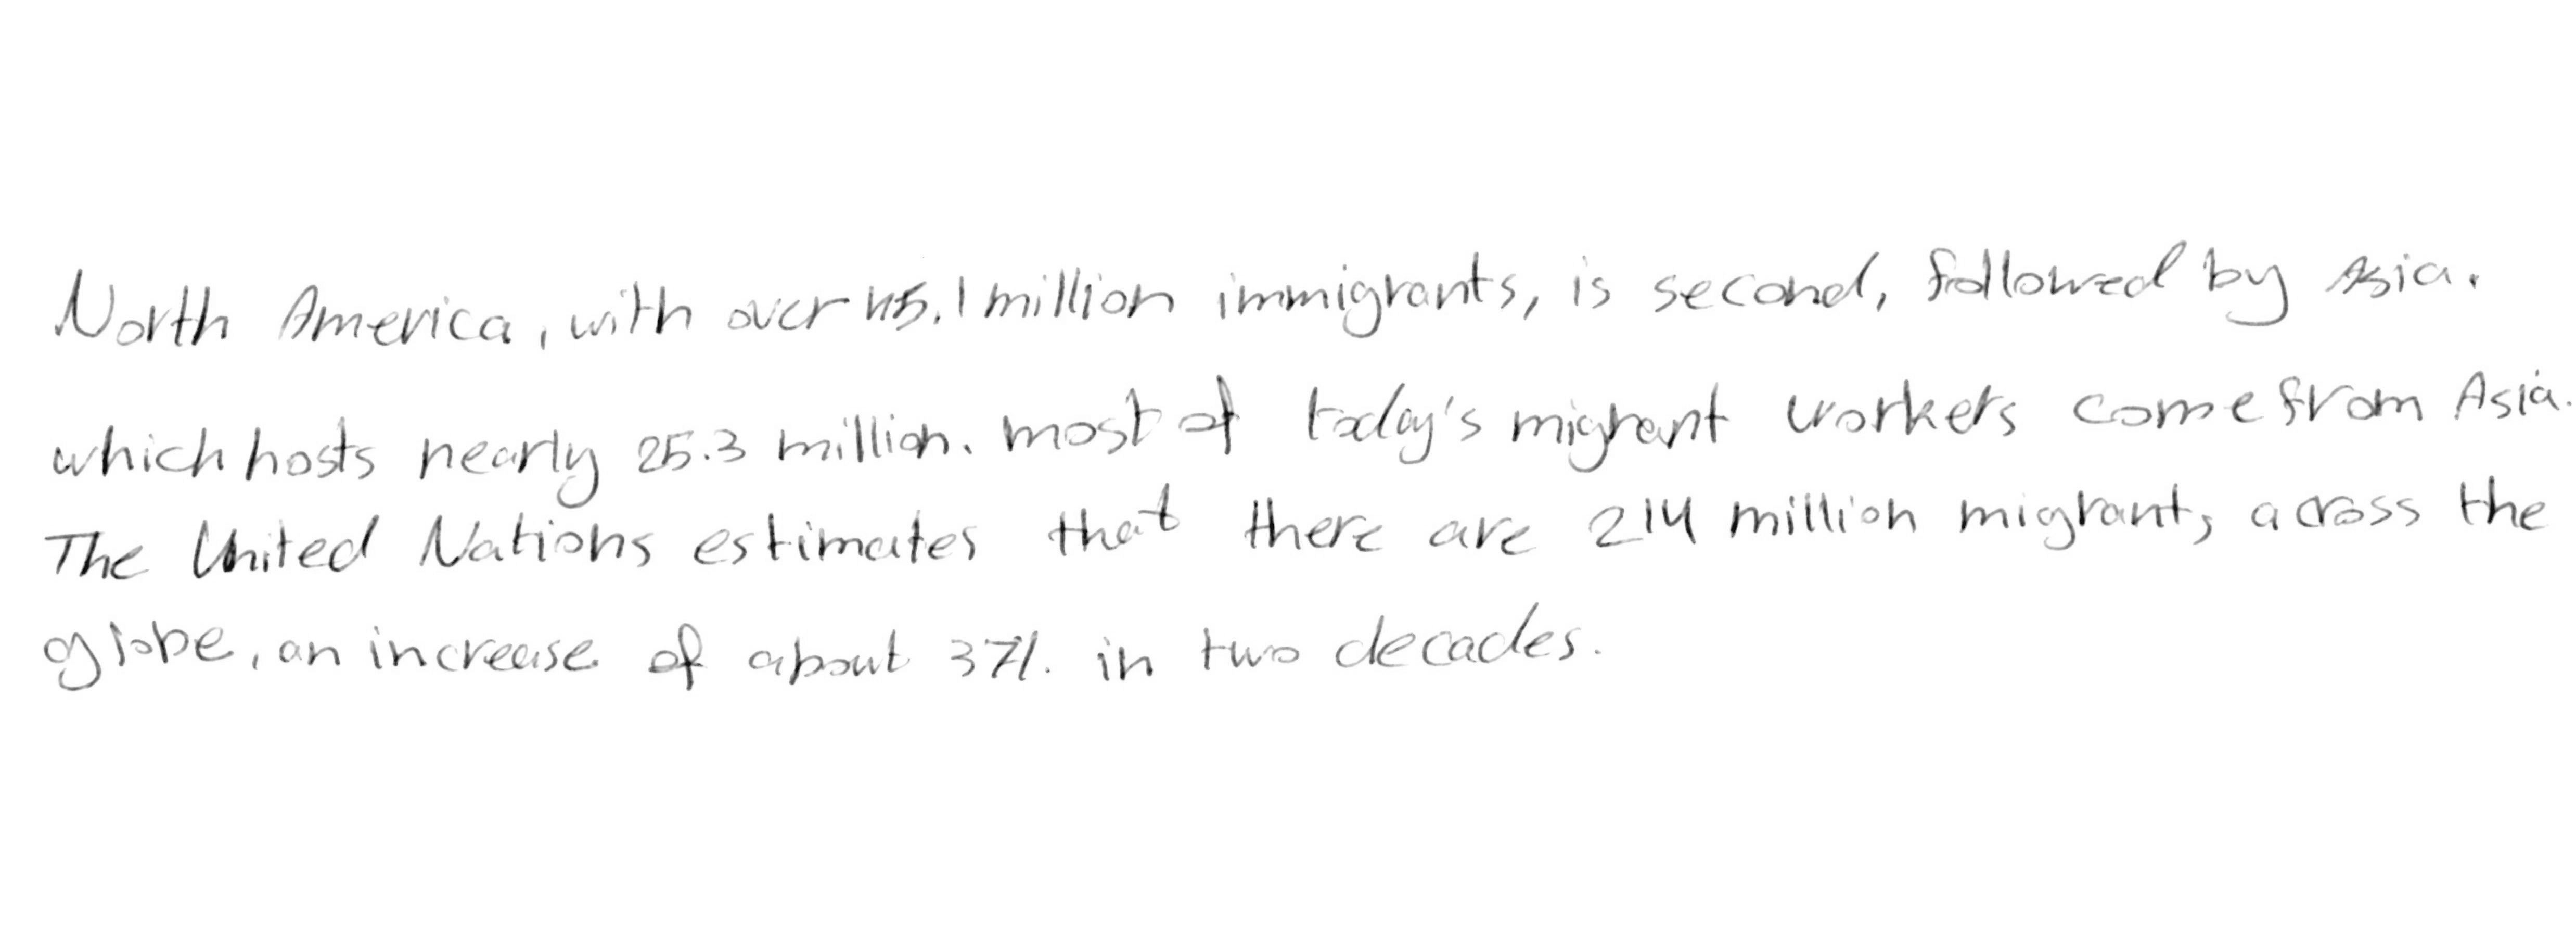 North America, with over 45.1 million immigrants, is second, followed by Asia.
which hosts nearly 25.3 million. most of today's migrant workers come from Asia.
The United Nations estimates that there are 214 million migrants across the
globe, an increase of about 37% in two decades.